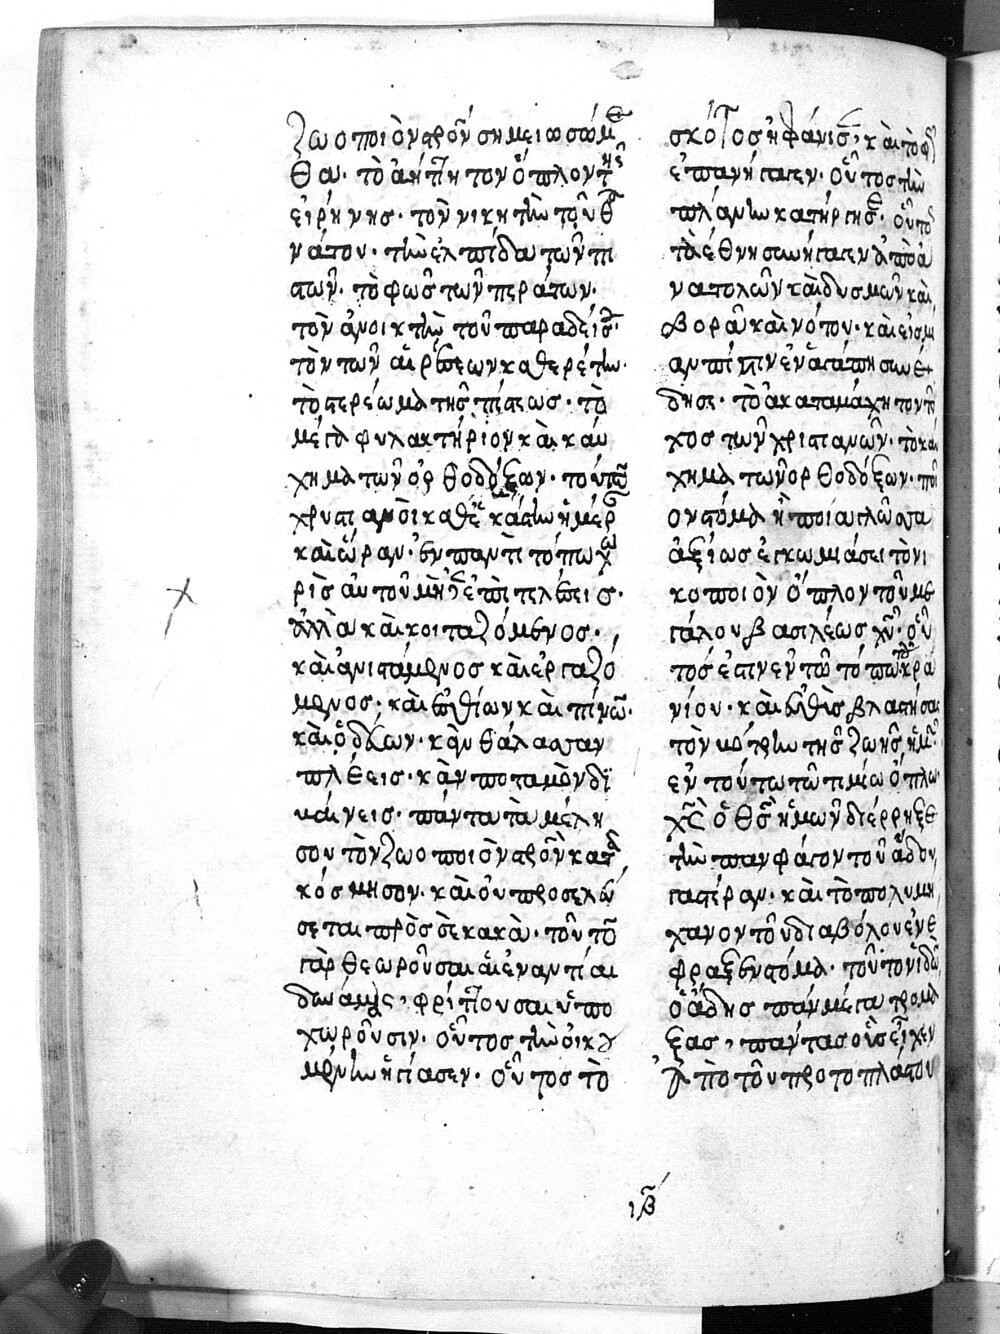 ζωοποιὸν σταυρὸν σημειωσώμε
θα· τὸ ἀήττητον ὅπλον τῆς
εἰρήνης· τὸν νικητὴν τοῦ θα
νάτου· τὴν ἐλπίδα τῶν πι
στῶν· τὸ φῶς τῶν περάτων·
τὸν ἀνοίκτην τοῦ παραδείσου·
τὸν τῶν αἱρέσεων καθερέτην·
τὸ στερέωμα τῆς πίστεως· τὸ
μέγα φυλακτήριον καὶ καύ
χημα τῶν ὀρθοδόξων· τοῦτο
χριστιανοὶ καθ' ἑκάστην ἡμέραν
καὶ ὥραν· ἐν παντὶ τόπω χω
ρὶς αὐτοῦ μὴ ἐπιτελέσεις·
ἀλλὰ καὶ κοιταζόμενος·
καὶ ἀνιστάμενος καὶ ἐργαζό
μενος· καὶ ἐσθίων καὶ πίνων·
καὶ ὁδεύων· κἂν θάλασσαν
πλέεις· κἂν ποταμὸν δϊ
αβαίνεις· πάντα τὰ μέλη
σου τὸν ζωοποιὸν σταυρὸν κατα
κόσμησον· καὶ οὐ προσελεύ
σεται πρὸς σὲ κακὰ· τοῦτο
γὰρ θεωροῦσαι αἱ ἐναντίαι
δυνάμεις, φρίττουσαι ὑπο
χωροῦσιν· οὗτος τὴν οἰκου
μένην ἡγίασεν· οὗτος τὸ
σκότος ἠφάνισε, καὶ τὸ φῶς
ἐπανήγαγεν· οὗτος τὴν
πλάνην κατήργησε· οὗτος
τὰ ἔθνη συνήγαγεν ἀπὸ ἀ
νατολῶν καὶ δυσμῶν καὶ
βορᾶ καὶ νότου· καὶ εἰς μί
αν πίστιν ἐν ἀγάπη συνέ
δησε· τὸ ἀκαταμάχητον τεῖ
χος τῶν χριστιανῶν· τὸ καύ
χημα τῶν ὀρθοδόξων· ποῖ
ον στόμα ἢ ποία γλῶσσα
ἀξίως ἐγκωμιάσει τὸ νι
κοποιὸν ὅπλον τοῦ με
γάλου βασιλέως χυ· οὗ
τός ἐστιν ἐν τῶ τόπω τοῦ κρα
νίου· καὶ εὐθὺς βλαστήσας
τὸν βότρυν τῆς ζωῆς ἡμῶν·
ἐν τούτω τῶ τιμίω ὅπλω·
χς ὁ θς ἡμῶν διέρρηξε
τὴν παμφάγον τοῦ ἅδου
γαστέραν· καὶ τὸ πολυμή
χανον τοῦ διαβόλου ἐνέ
φραξεν στόμα· τοῦτον ἰδὼν
ὁ ἅδης πάνμεγα τρομά
ξας, πάντας οὓς εἶχεν
ἀπὸ τοῦ πρωτοπλάστου
ιβ